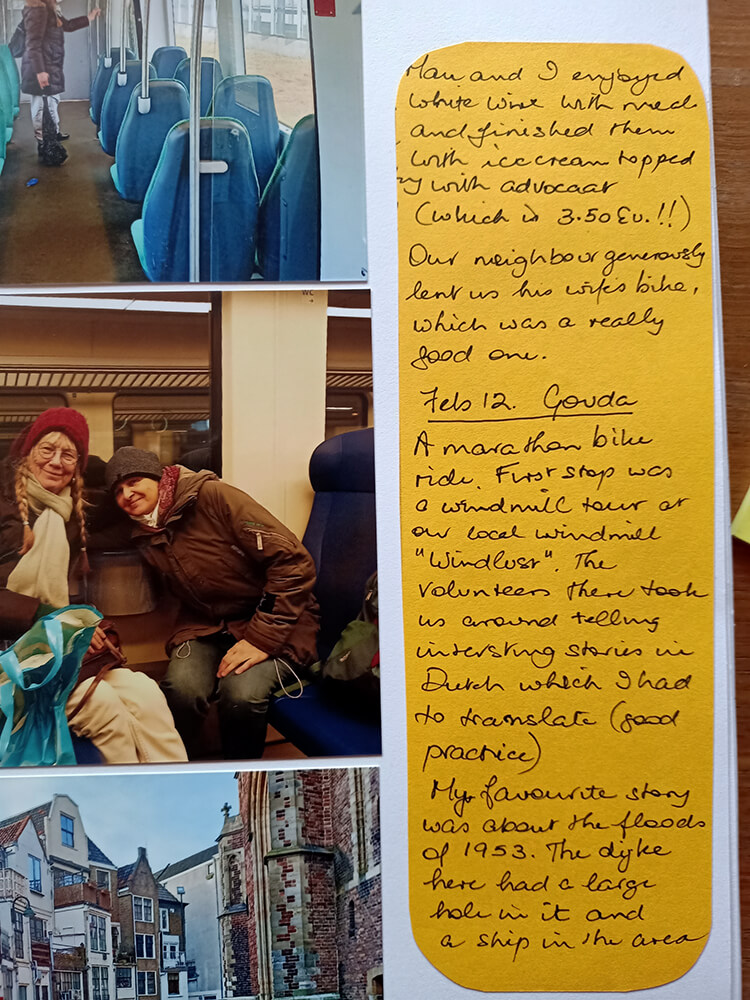 and I enjoyed
white wine with
and finished them
with ice cream topped
with advocaat
(which is 3.50 Eu.!!)
Our neighbour generously
lent us his wife's bike,
which was a really
good one.
Feb 12. Gouda
A marathon bike
ride. First stop was
a windmill tour at
our local windmill
"Windlust". The
volunteers there took
us around telling
intersting stories in
Dutch which I had
to translate (good
practice)
My favourite story
was about the floods
of 1953. The dyke
here had a large
hole in it and
a ship in the area
WC